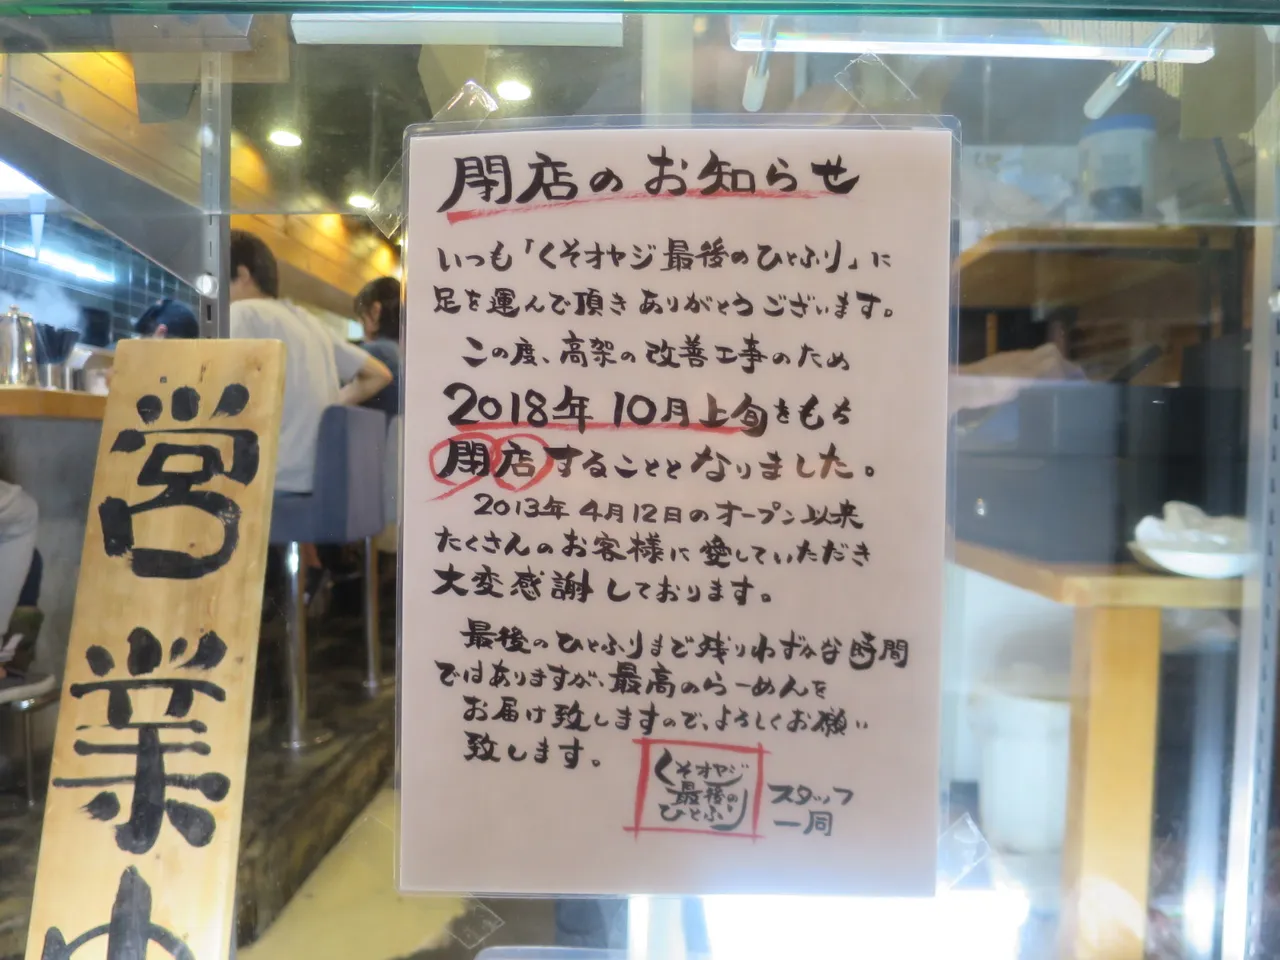 閉店のお知らせ
いつも「くそオヤジ最後のひとふり」に
足を運んで頂きありがとうございます。
この度、高架の改善工事のため
2018年10月上旬をもち
閉店することとなりました。
2013年4月12日のオープン以来
たくさんのお客様に愛していただき
大変感謝しております。
最後のひとふりまで残りわずかな時間
ではありますが、最高のらーめんを
お届け致しますので、よろしくお願い
致します。
くそオヤジ
最後の
ひとふり
スタッフ
一同
営業中